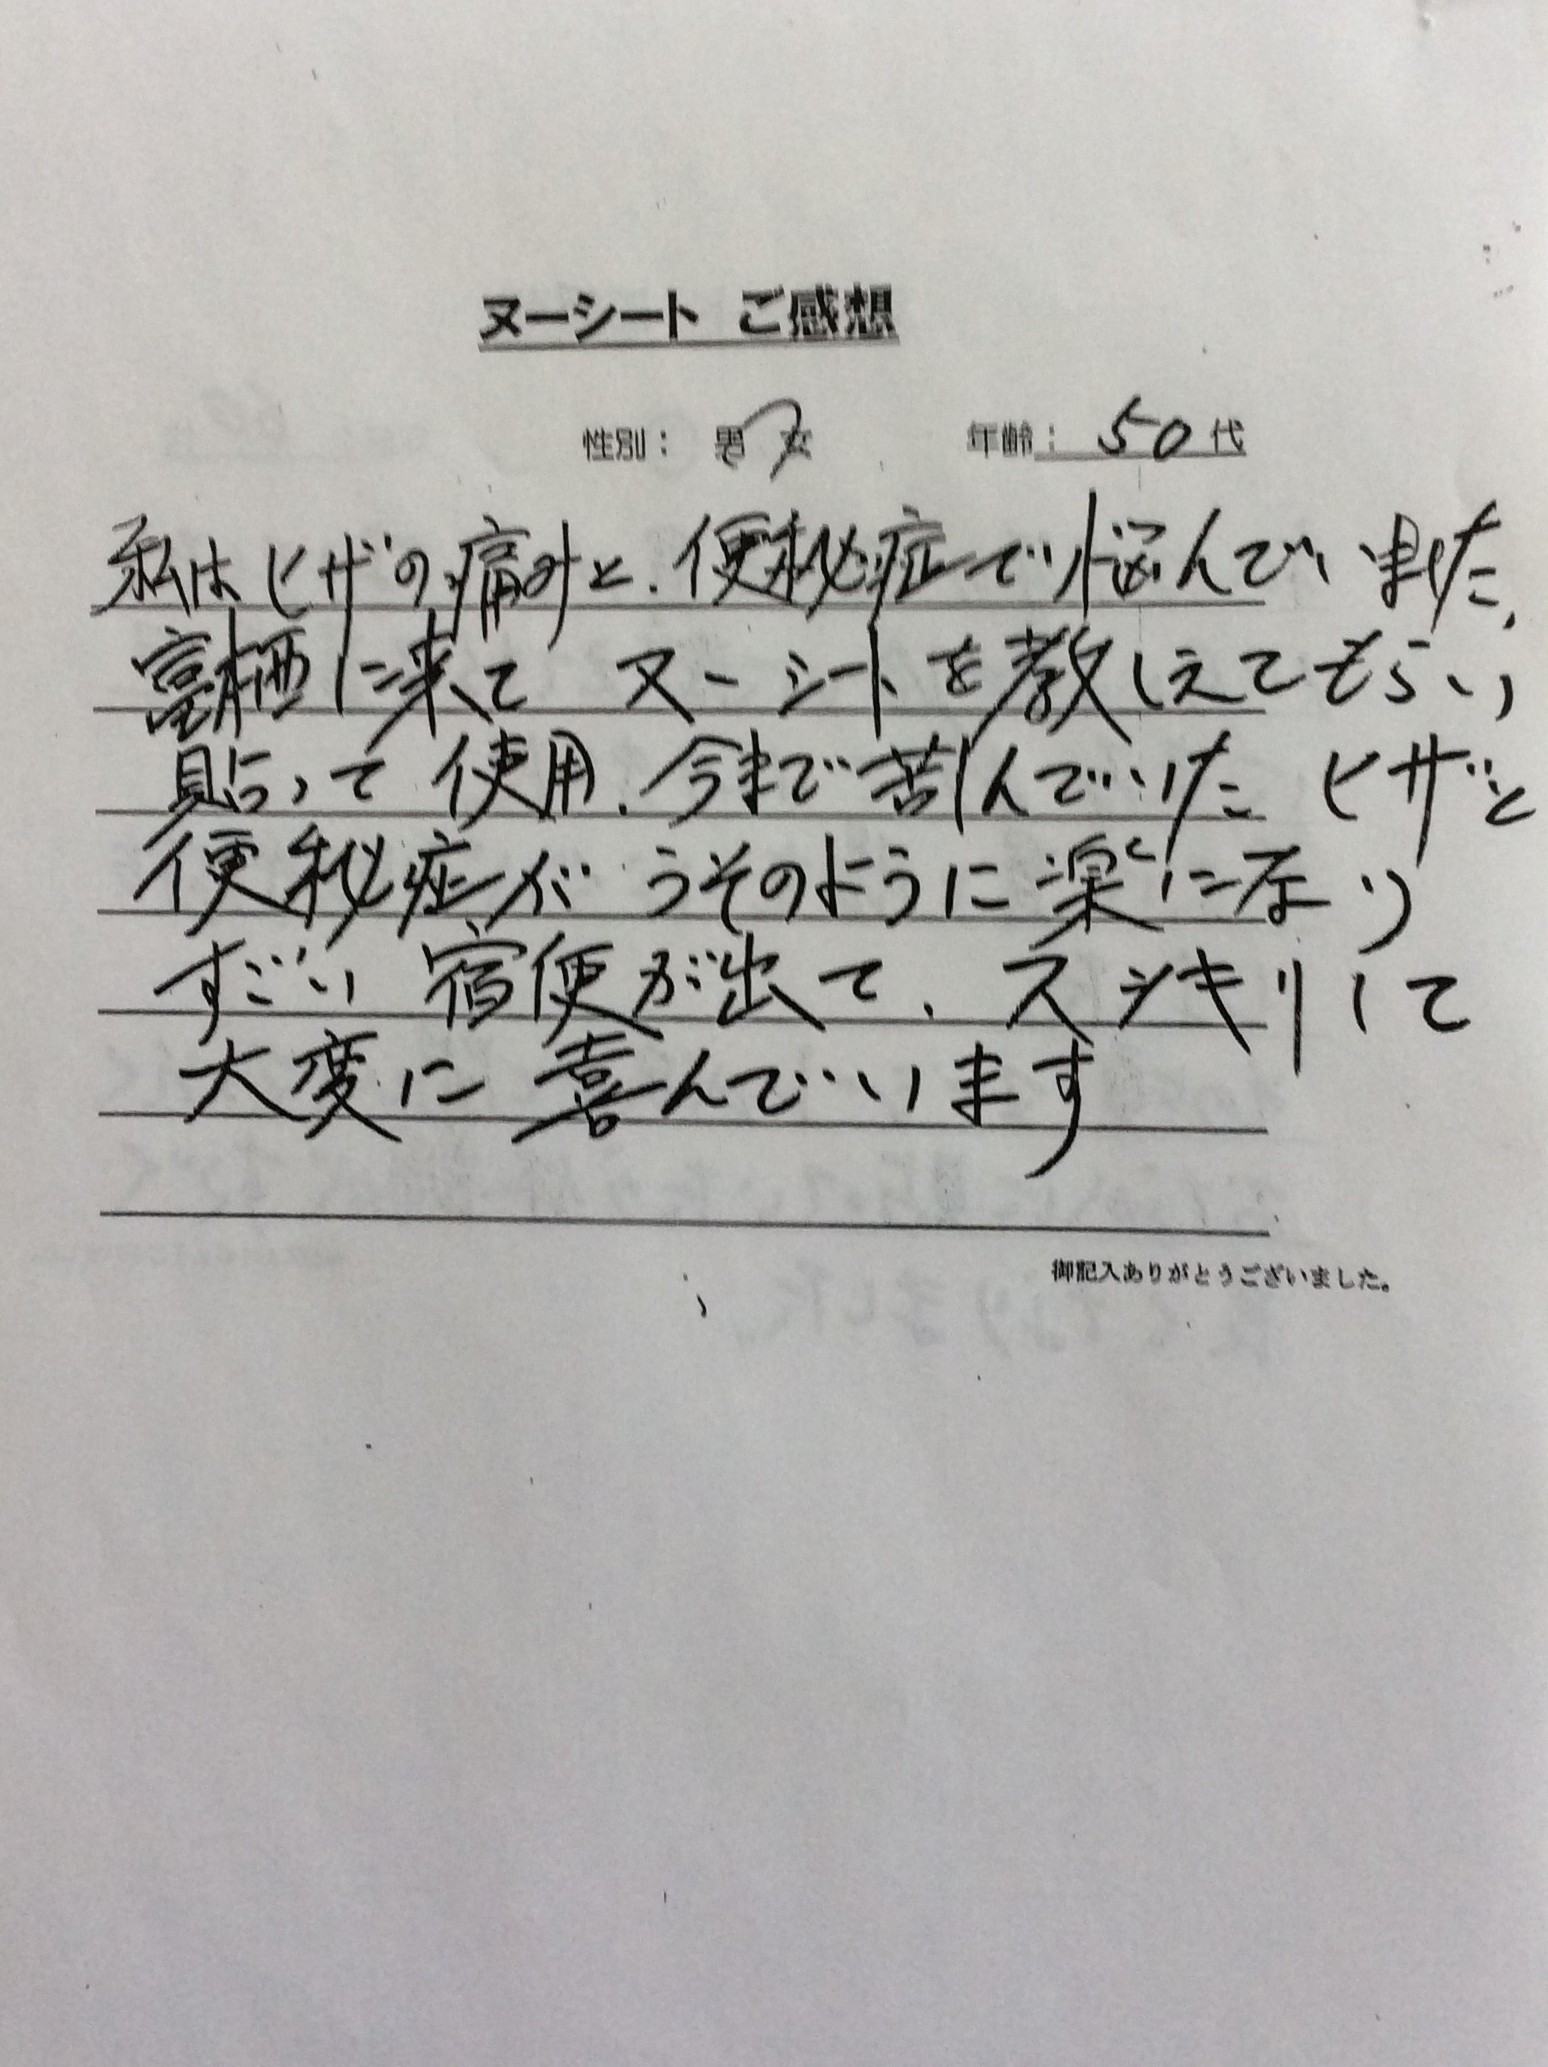 ヌーシート ご感想
性別： 男 女 年齢： 50代
私はヒザの痛みと、便秘症で悩んでいました、
に来て ヌーシートを教しえてもらい
貼って使用、今まで苦しんでいた ヒザと
便秘症が うそのように楽になり
すごい 宿便が出て、スッキリして
大変に 喜んでいます
御記入ありがとうございました。